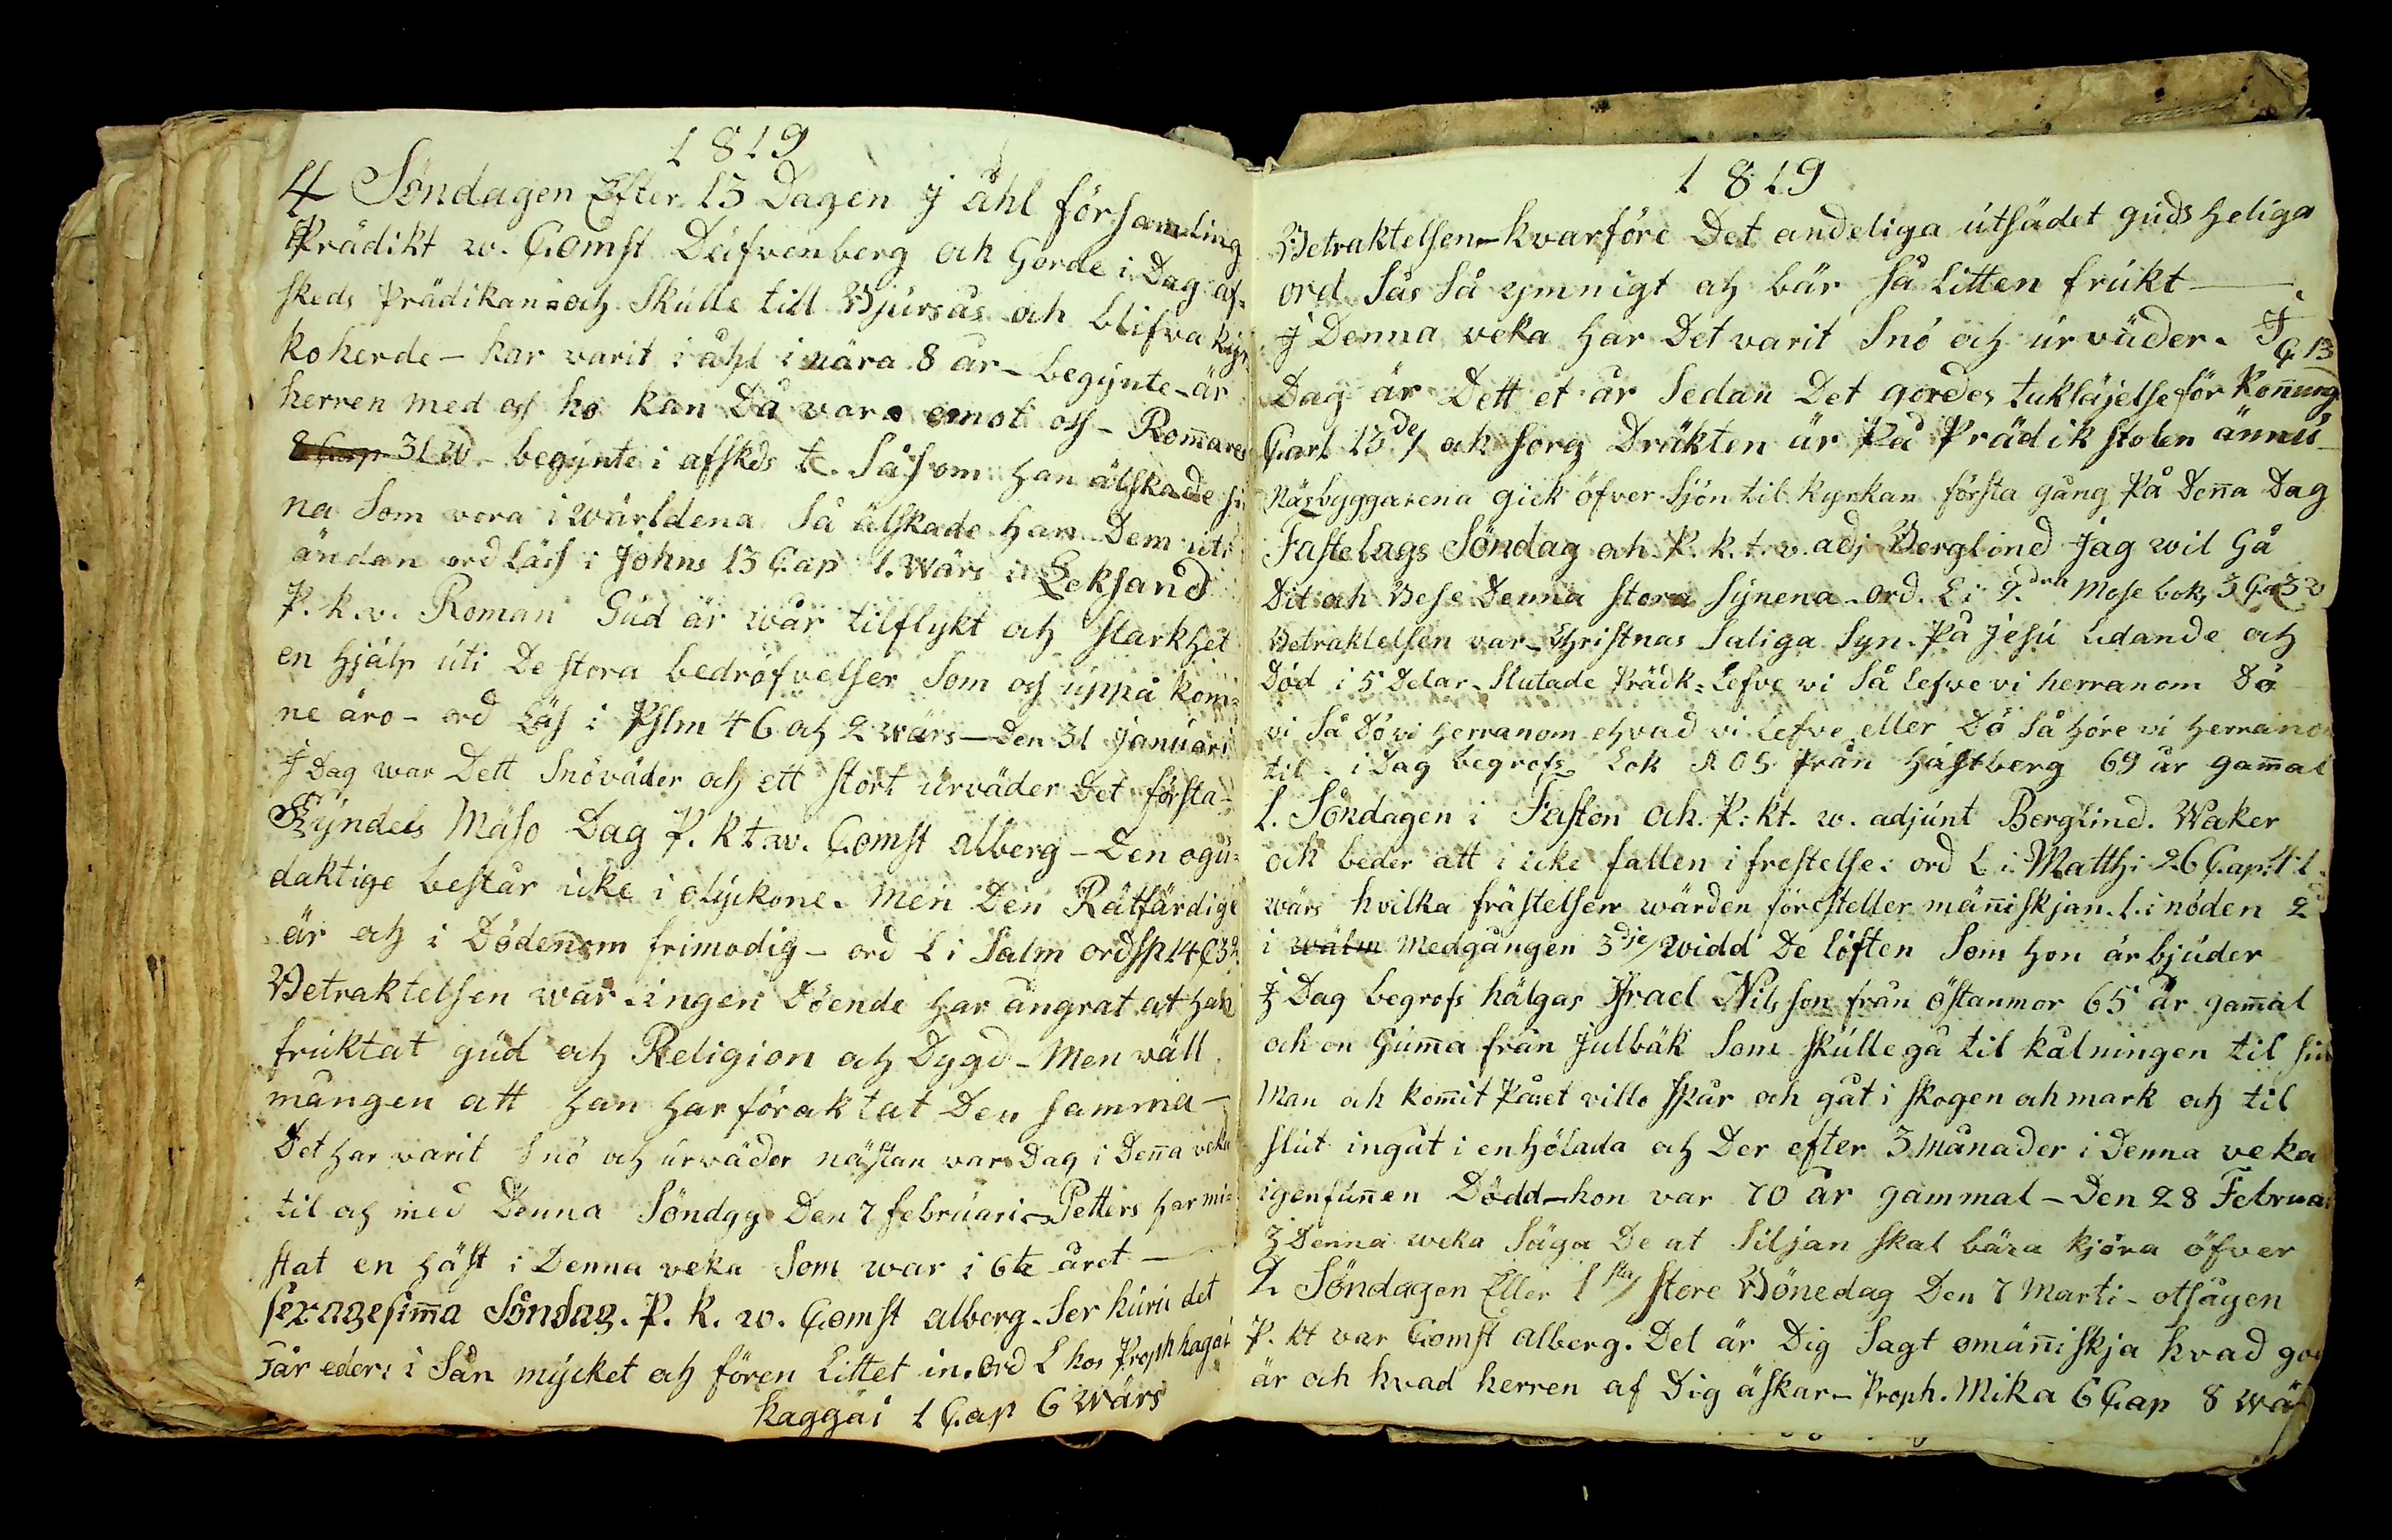 1819
4 Söndagen Efter 13 Dagen J åhl församling
Prädikt w. Comst Dufvenberg och Gorde i Dag af-
skeds Prädikan och Skulle till Bjursås och blifva kyr-
koherde - har varit i åhl i nära 8 år - begynte - är
herren med oss ho kan Då vara emot oss - Rom̄ares
8 Cap 31 W - begynte i afskds te. Såsom han älskade si-
na Som vora i wärldena Så älskade han Dem uti
ändan ord Läss i Johns 13 Cap 1. Wärs i Leksand
P. k. v. Roman Gud är wår tilflykt och starkhet
en hjälp uti De stora bedröfvelser Som oss uppå kom-
ne äro - ord Läs i Pslm 46 och 2 wärs - Den 31 januari
J Dag war Dett Snöväder och ett stort urväder Det första -
Kyndels Mäso Dag P. kt. w. Comst alberg - Den ogu-
daktige består icke i olyckone. men Den Rätfärdige
är och i Dödenom frimodig - ord L i Salm ordsp 14 C 32
Betraktelsen war - ingen Döende har ångrat at han
fruktat gud och Religion och Dygd - Men väll
mången att han har föraktat Den samma -
Det har varit Snö och urväder nästan var Dag i Den̄a veka
til och med Denna Söndgg Den 7 februari - Petters har mi-
stat en häst i Denna veka Som war i 6te året -
sexagesim̄a Söndag. P. k. w. Comst alberg. Ser huru det
går eder: i Sån mycket och fören Littet in. Ord L hos Proph hagai
Haggai 1 Cap 6 Wärs
1819
Betraktelsen - hvarföre Det andeliga utsädet guds heliga
ord Sås Så ymnigt och bär Så Litten frukt -
J Denna veka har Det varit Snö och urväder. J
Dag är Dett et år Sedan Det gordes taksäjelse för Kon̄ung C 13
Carl 13de/ och sorg Dräkten är På Prädikstolen ännu -
Näsbyggarena gick öfver Sjön til kyrkan första gång På Den̄a Dag
Fastelags Söndag och P. k. t. v. adj Berglind Jag wil Gå
Dit och Bese Denna stora Synena - ord. L i 2.dra Mose bok, 3 Ca 3 v
Betraktelsen var - Christnas Saliga Syn. På jesu Lidande och
Död i 5 Delar - Slutade Prädk - Lefve vi Så Lefve vi herranom Dö
vi Så Dö vi herranom ehvad vi Lefve eller Dö Så höre vi herranom
til - i Dag begrofs Lok A O S från hästberg 69 år gam̄al
1. Söndagen i Faston och. P: kt. w. adjunt Berglind. Waker
och beder att i icke fallen i frestelse: ord L i: Matth: 26 Cap: 41
wärs hvilka frästelser wärden föresteller män̄iskjan. 1. i nöden 2
i wälm medgången 3dje/ widd De löften Som hon är bjuder
J Dag begrofs hälgas Israel Nilsson från östanmor 65 år gam̄al
och en Gum̄a från julbäk Som skulle gå til kålningen til sin
Man och kom̄it På et villo Spår och gåt i skogen och mark och til
slut ingåt i en hölada och Der efter 3 månader i Denna veka
igenfun̄en Dödd - hon var 70 år gammal - Den 28 Februa
J Denna weka Säga De at Siljan skal bära kjöra öfver
2 Söndagen Eller 1sta/ store Bönedag Den 7 Marti - otsågen
P. kt var Comst alberg. Det är Dig Sagt o män̄iskja hvad god
är och hvad herren af Dig äskar - Proph. Mika 6 Cap 8 wäs